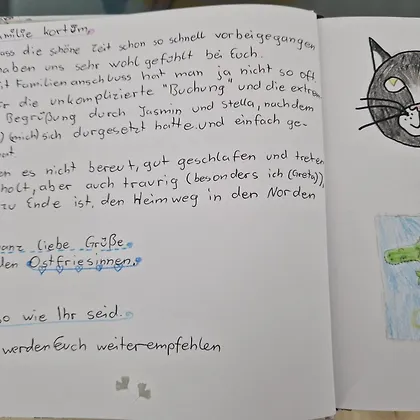 amilie Kortüm,
ass die schöne Zeit schon so schnell vorbeigegangen
haben uns sehr wohl gefühlt bei Euch.
it Familienanschluss hat man ja nicht so oft
r die unkomplizierte "Buchung" und die extrem
Begrüßung durch Jasmin und Stella, nachdem
) (mich) sich durgesetzt hatte und einfach ge-
at
on es nicht bereut, gut geschlafen und treten
holt, aber auch traurig (besonders ich (Greta)),
zu Ende ist, den Heimweg in den Norden
anz liebe Grüße
den Ostfriesinnen.
so wie Ihr seid.
werden Euch weiterempfehlen